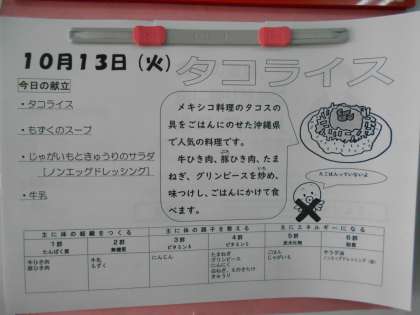 10月13日（火）
タコライス
今日の献立
・タコライス
・もずくのスープ
・じゃがいもときゅうりのサラダ
［ノンエッグドレッシング］
・牛乳
メキシコ料理のタコスの
具をごはんにのせた沖縄県
で人気の料理です。
牛ひき肉、豚ひき肉、たま
ねぎ、グリンピースを炒め、
味つけし、ごはんにかけて食
べます。
たこは入っていないよ
主に体の組織をつくる
主に体の調子を整える
主にエネルギーになる
1群 たんぱく質
2群 無機質
3群 ビタミンA
4群 ビタミンC
5群 炭水化物
6群 脂質
牛ひき肉
豚ひき肉
牛乳
もずく
にんじん
たまねぎ
グリンピース
にんにく
はねぎ、えのきたけ
きゅうり
ごはん
じゃがいも
サラダ油
ノンエッグドレッシング